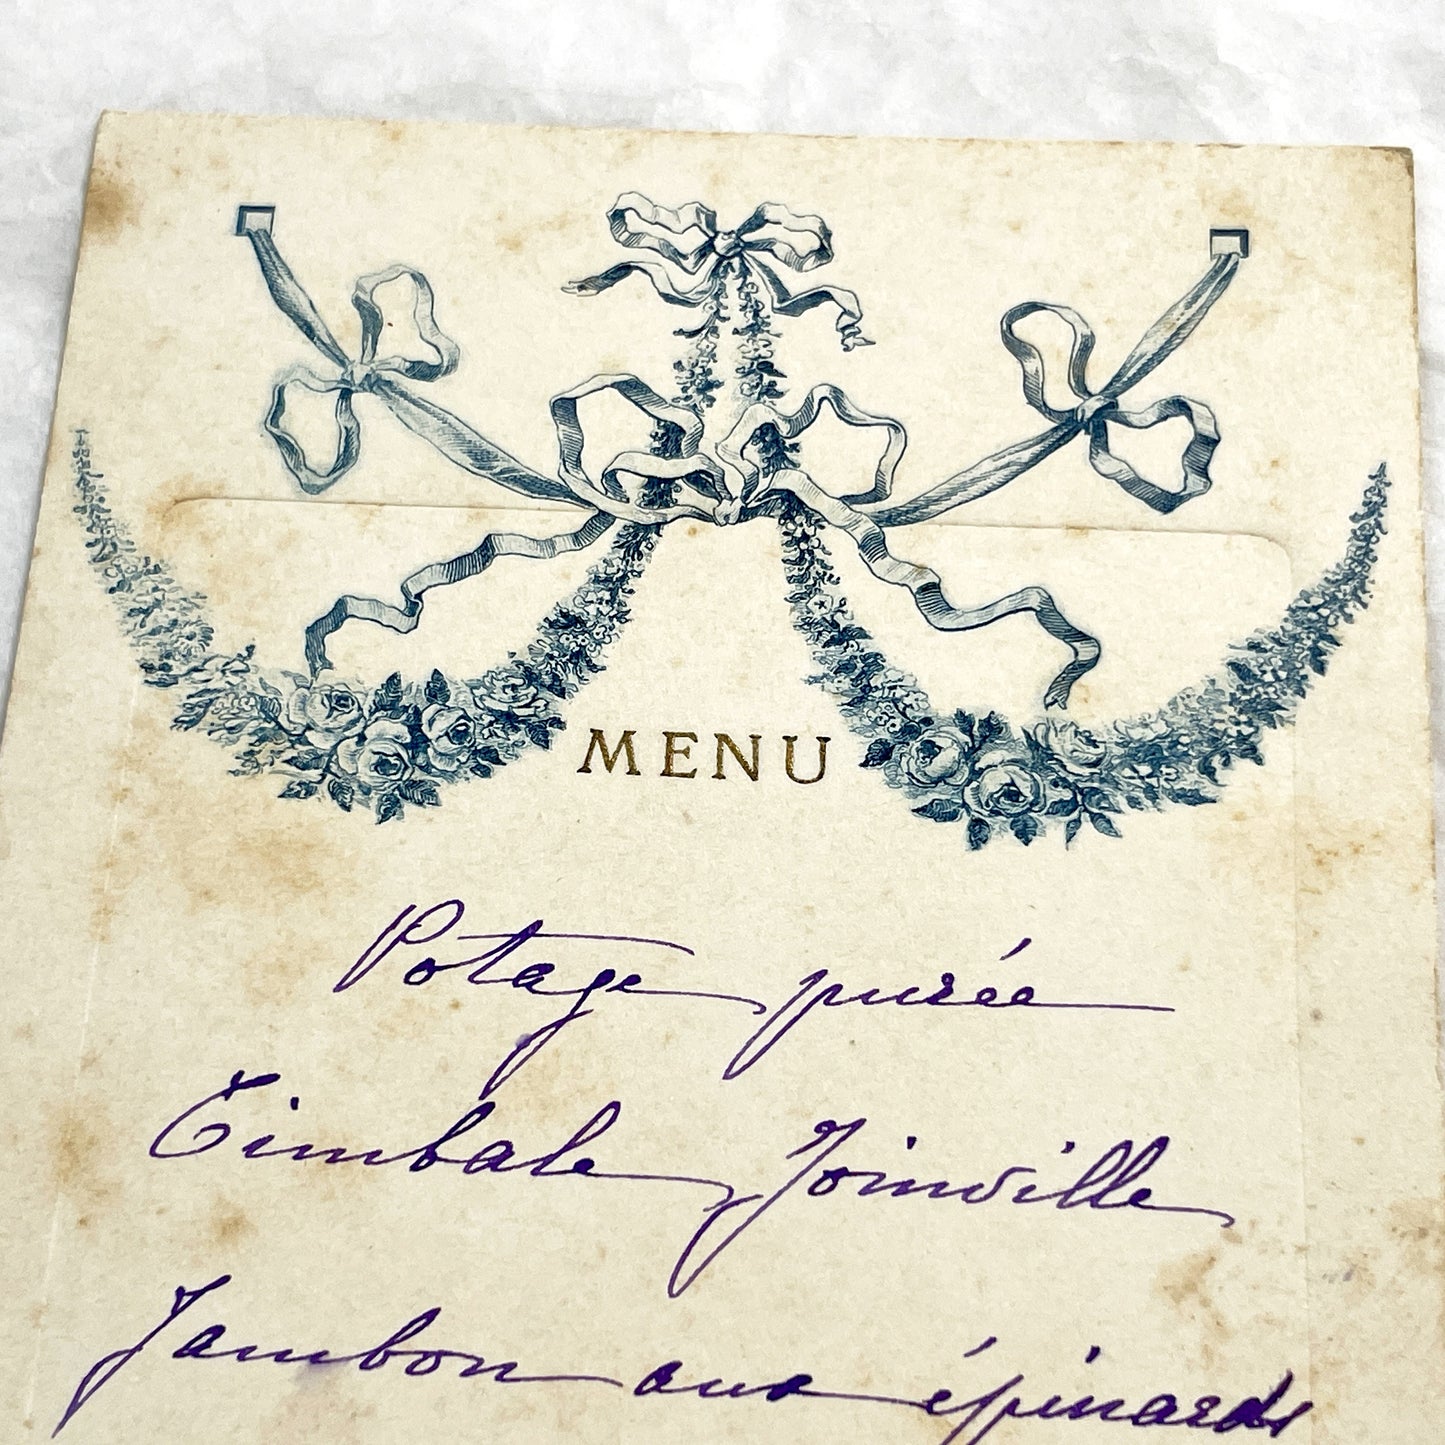 MENU
Potage purée
Timbale Joinville
Jambon aux épinards